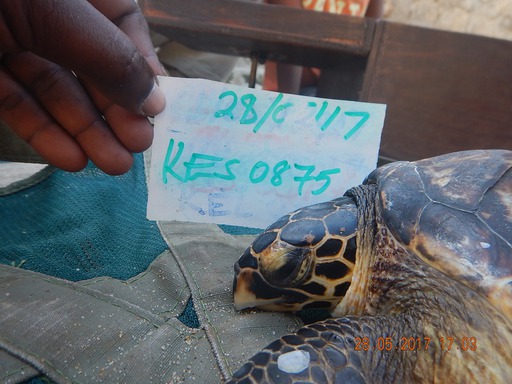 28/6/17
KES 0875
28.05.2017 17:03